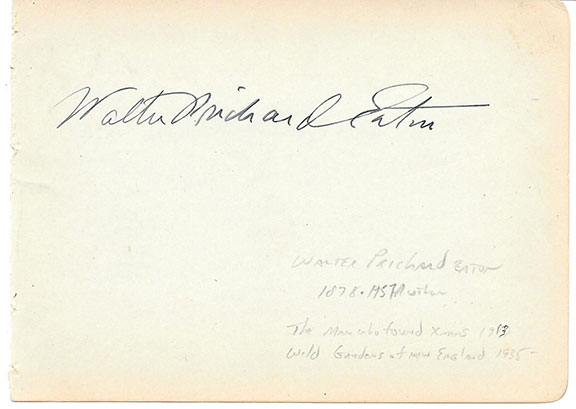 Walter Prichard Eaton
WALTER PRICHARD EATON
1878 - Author
The Man who found Xmas 1913
Wild Gardens of New England 1935 -